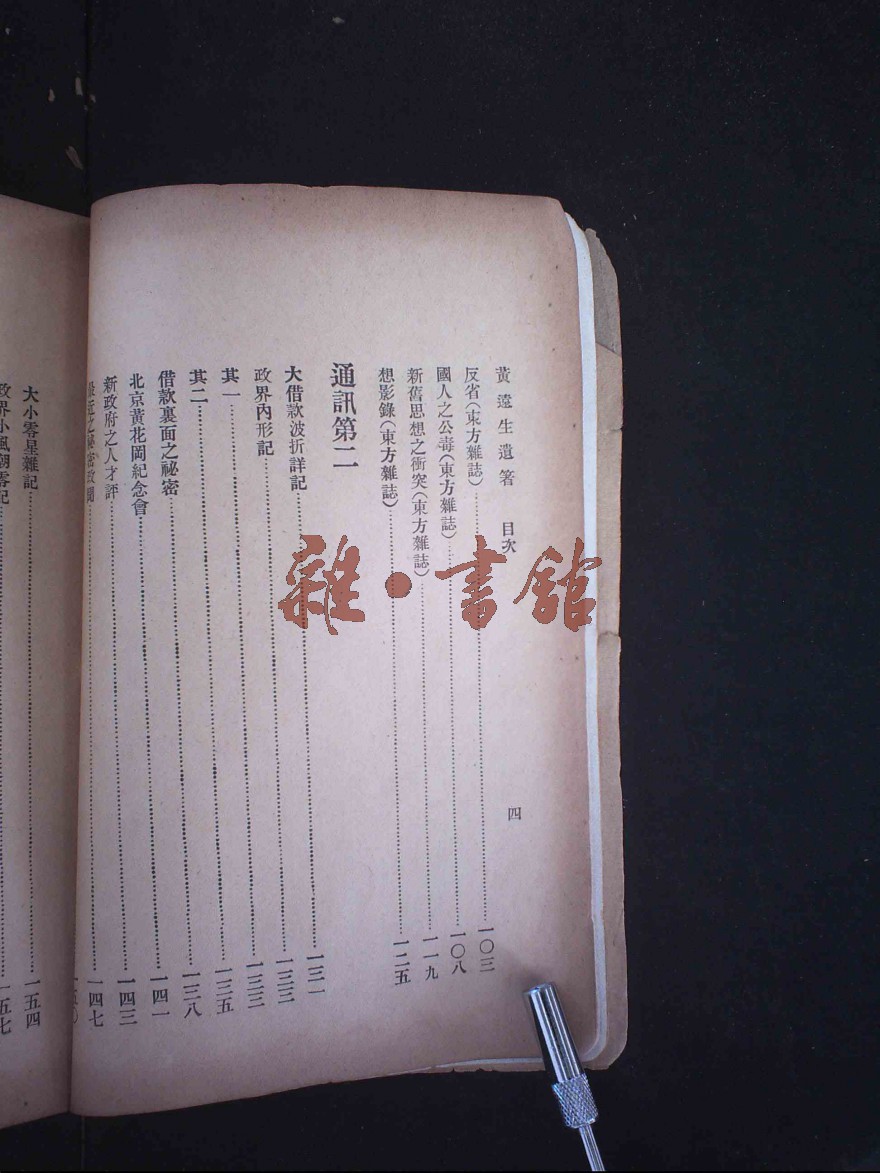 黃遠生遺著　目次　四
反省(東方雜誌)……一〇三
國人之公毒(東方雜誌)……一〇八
新舊思想之衝突(東方雜誌)……一一九
想影錄(東方雜誌)……一二五
通訊第二
大借款波折詳記……一三一
政界內形記……一三三
其一……一三三
其二……一三五
借款裏面之祕密……一三八
北京黃花岡紀念會……一四一
新政府之人才評……一四三
最近之祕密政聞……一四七
一五〇
大小零星雜記……一五四
政界小風潮零記……一五七
雜·書館